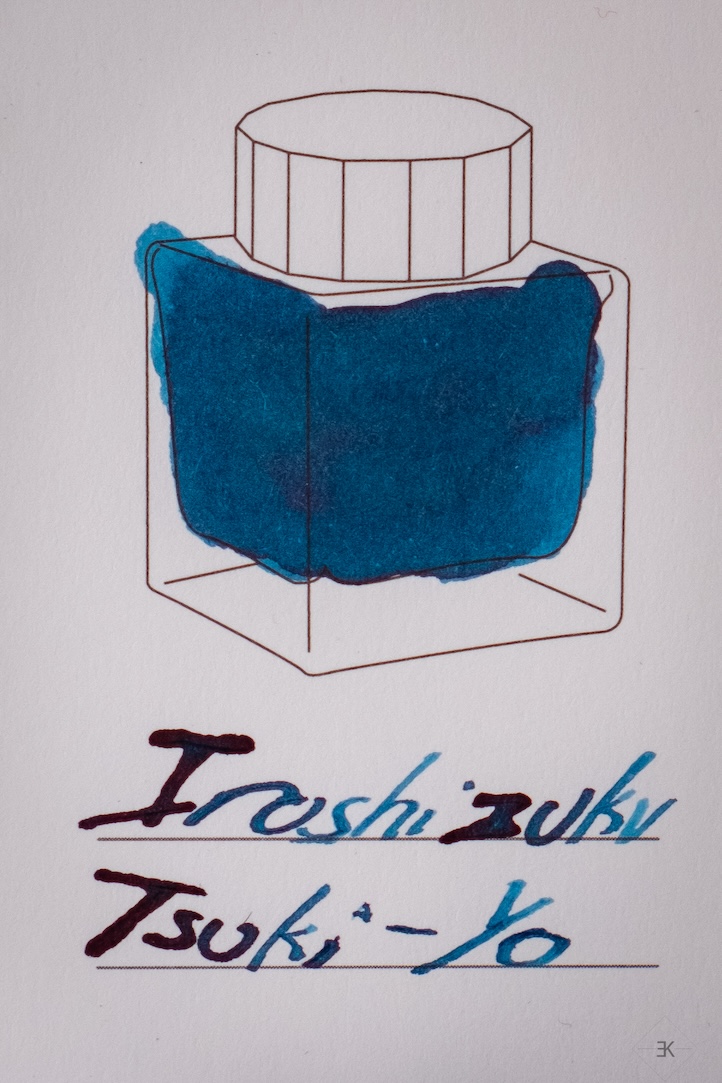 Iroshizuku
Tsuki-Yo
EK